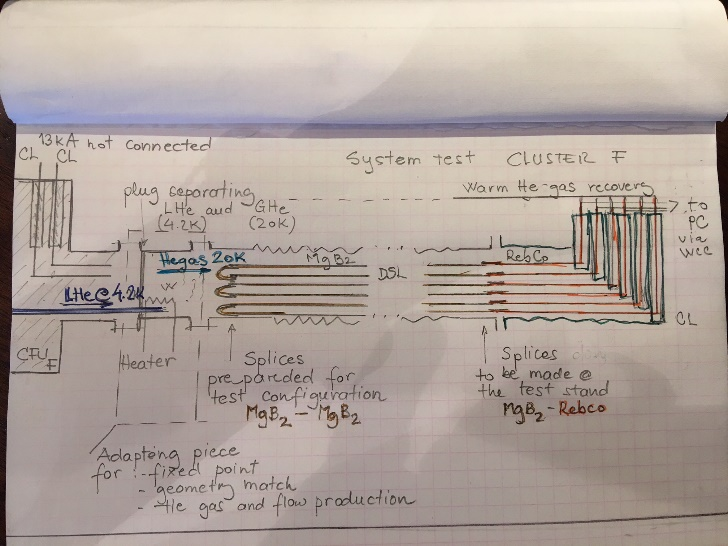 13kA not connected
CL CL
System test CLUSTER F
plug separating
LHe and GHe
(4.2K) (20K)
Warm He-gas recovery
to
PC
via
WCC
He gas 20K
MgB2
RebCo
DSL
LHe @ 4.2K
W
CL
CFU F
Heater
Splices
prepareded for
test configuration
MgB2 - MgB2
Splices
to be made @
the test stand
MgB2 - Rebco
Adapting piece
for :- fixed point
- geometry match
- He gas and flow production